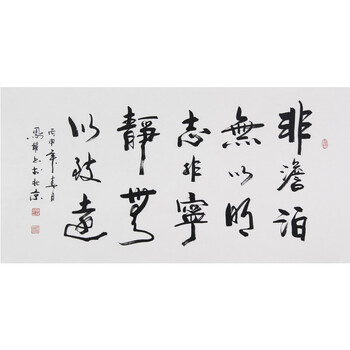 非澹泊
無以明
志非寧
靜無
以致遠
丙申年春月
於北京